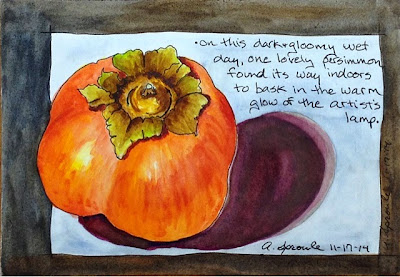 • on this dark + gloomy wet
day, one lovely persimmon
found its way indoors
to bask in the warm
glow of the artist's
lamp.
a. Sproule 11-17-14